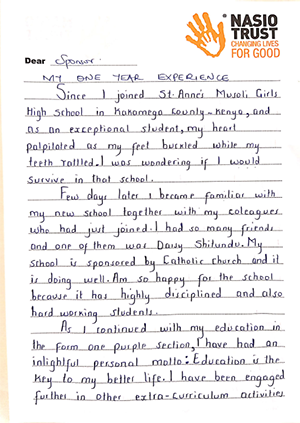 NASIO
TRUST
CHANGING LIVES
FOR GOOD
Dear Sponsor.
MY ONE YEAR EXPERIENCE
Since I joined St. Anne's Musoli Girls
High School in Kakamega County-Kenya, and
as an exceptional student, my heart
palpitated as my feet buckled while my
teeth rattled. I was wondering if I would
survive in that school.
Few days later I became familiar with
my new school together with my coleagues
who had just joined. I had so many friends
and one of them was Daisy Shitundu. My
School is sponsored by Catholic church and it
is doing well. Am so happy for the school
because it has highly disciplined and also
hard working students.
As I continued with my education in
the form one purple section, I have had an
inlightful personal motto: Education is the
key to my better life. I have been engaged
further in other extra-curriculum activities